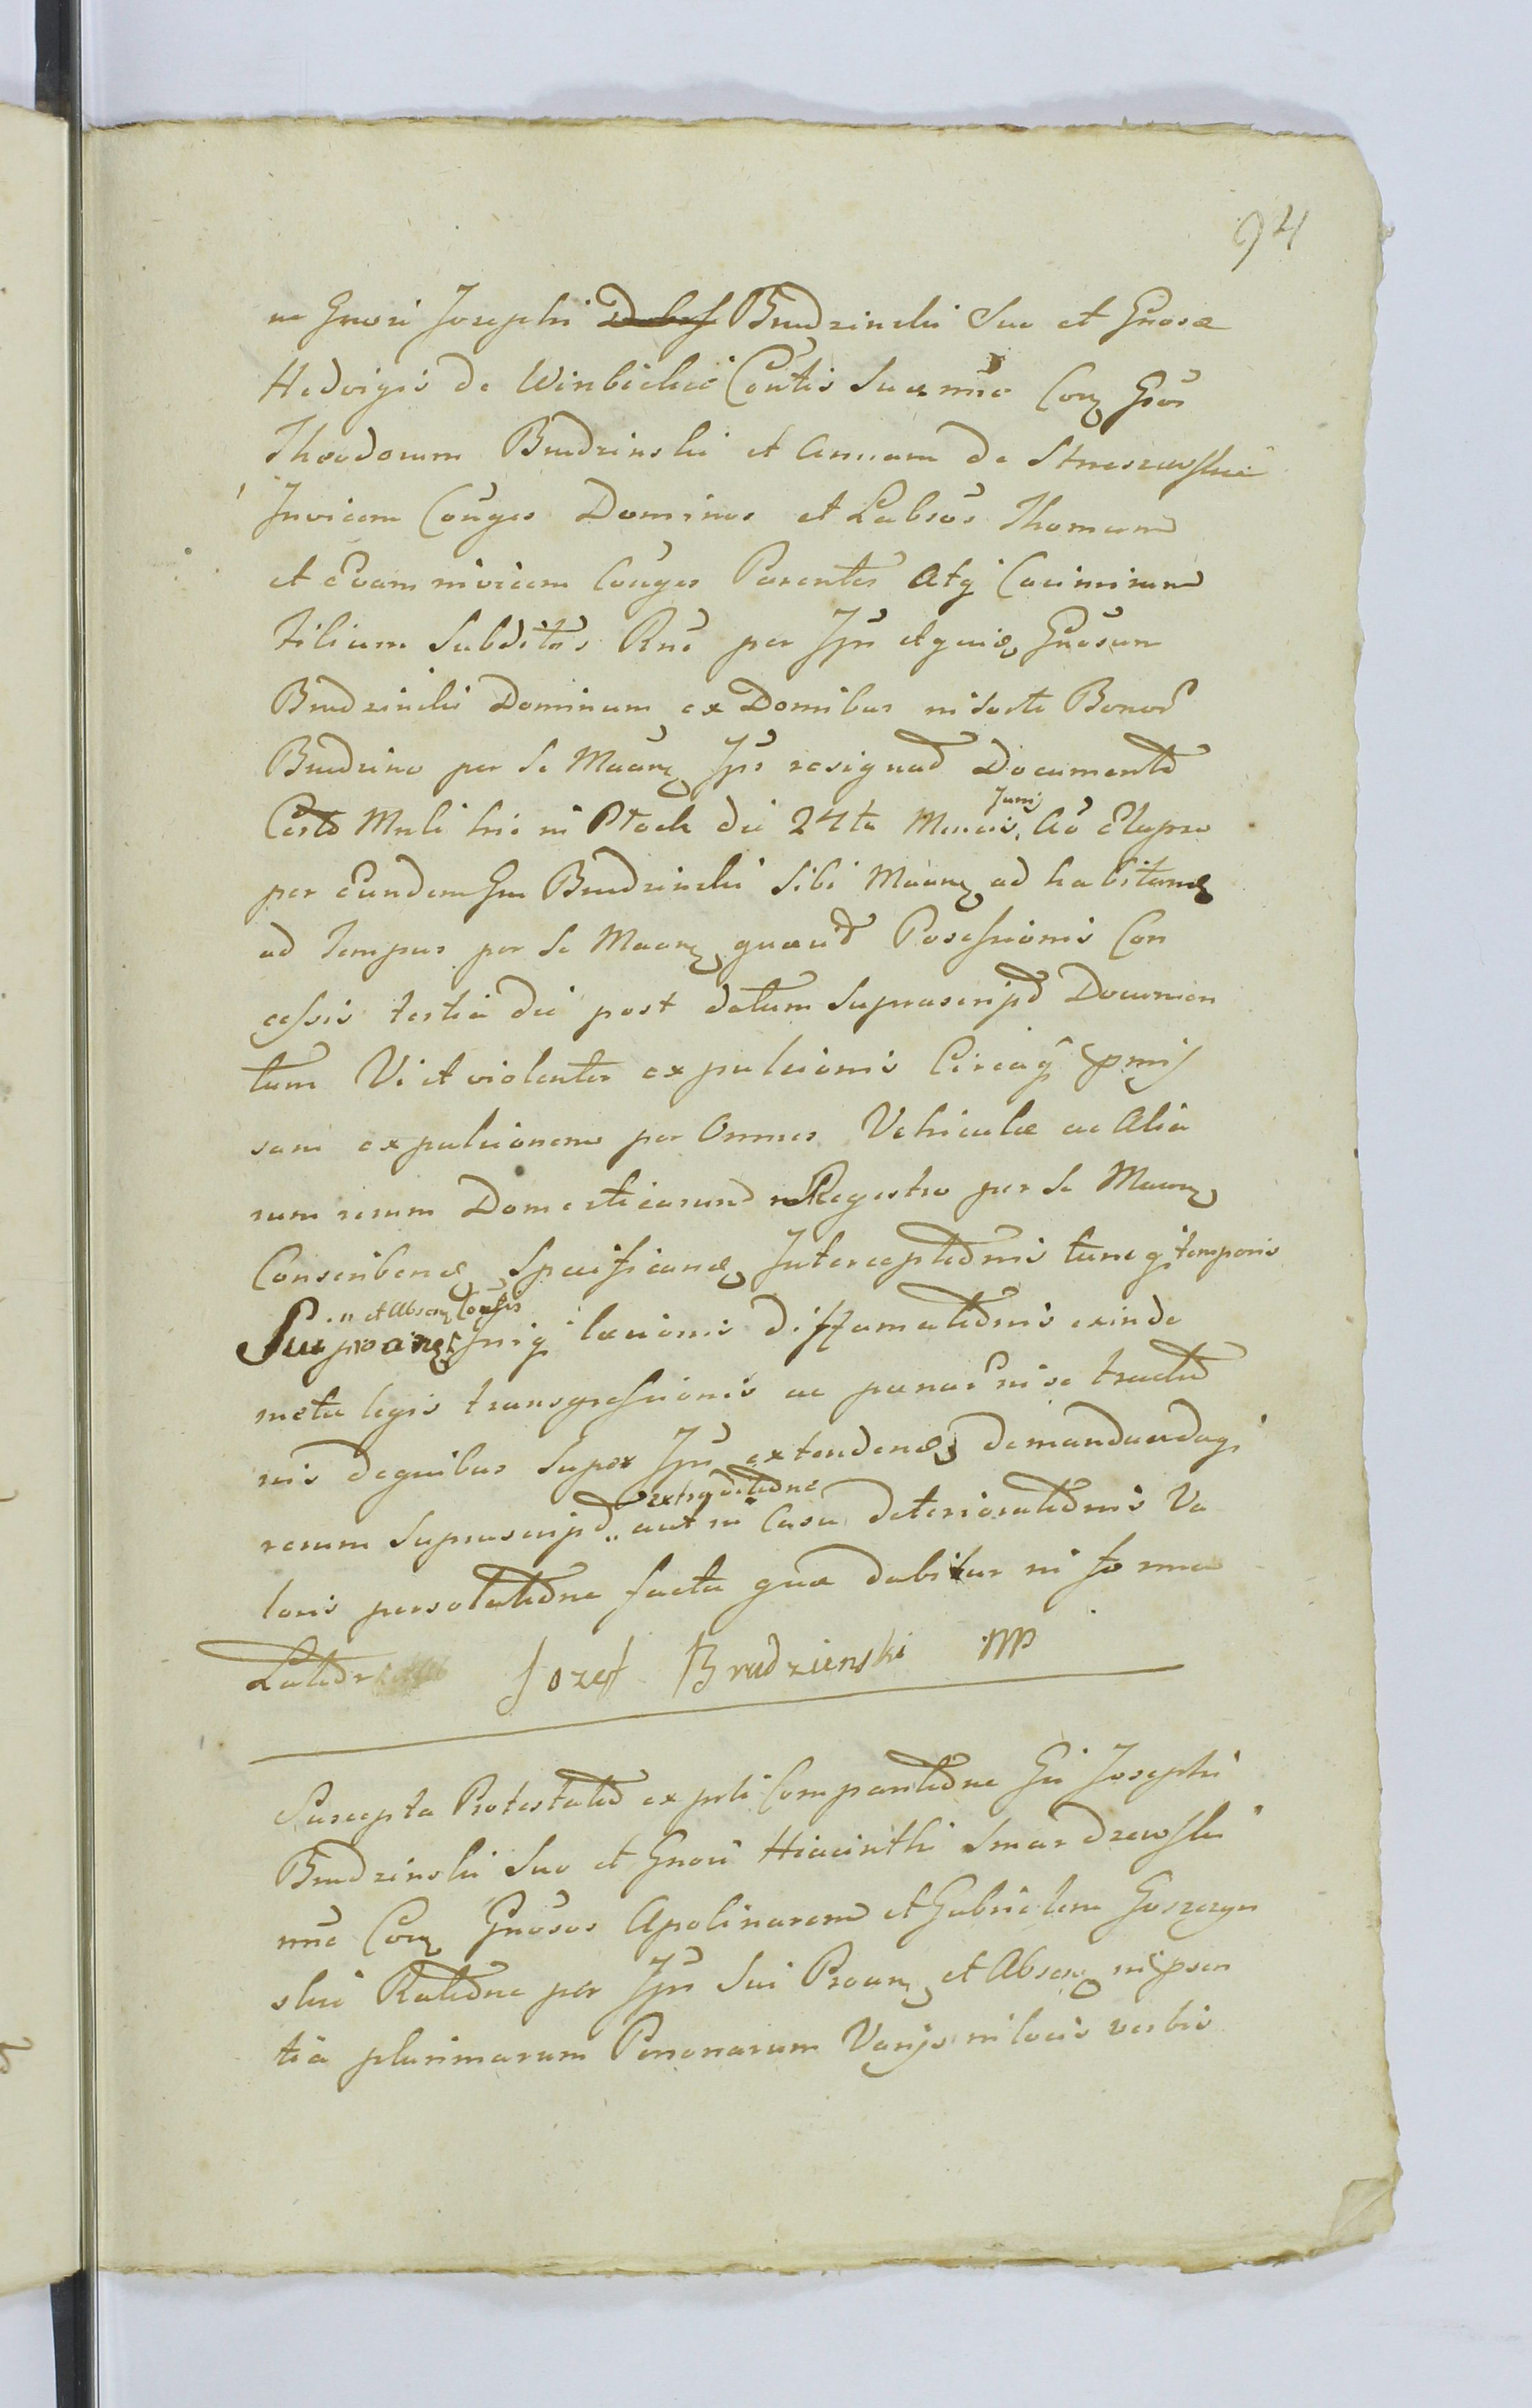 94
ne Gnosi Josephi Dobrs Brudzinski Suo et Gnosæ
Hedvigis de Winbickie Contis Suæ nnõe Cor. Gsos
Theodorum Brudzinski et Annam de Straszewskie
Invicem Conges Dominos et Labsos Thomam
et Evam invicem Conges Parentes Atq Casimirum
Filium Subditos Rne per Jpn et quidz Gnosum
Brudzinski Dominum ex Domibus in sorte Bonor
Brudzino per se Maanz Jps resignat Documento
Certo Mnli hic in Płock die 24ta Mensis Junij Ao Elapso
per Eundem Gm Brudzinski Sibi Maanz ad habitandz
ad Tempus per se Maanz quæud Possessionis Con
cessis tertia die post datum suprascript Documen
tum Vi et violenter expulsionis Circaq pmis
sam expulsionem per Omnes Vehiculæ ac Alia
rum rerum Domesticarum in Registro per se Maanz
Conscribendz Specificandz Interceptionis tuncq temporis
Sui proanz et Absenz Consis Jniq læsionis diffamationis exinde
metu legis transgressionis ac pænar in se tractio
nis dequibus super Jpn extendendz demandandaq
rerum Suprascript extraditione aut in Casu deteriorationis Va
loris persolutione facta quæ dabitur in forma
Latior Jozef Brudzienski MP
Suscepta Protestatio ex psli Comparitione Gsi Josephi
Brudzinski Suo et Gnosi Hiacinthi Smardzewski
nne Cor. Gnosos Apolinarem et Gabrielem Goszczyn
skie Ratione per Jpn Sui Proanz et Absenz in psen
tia plurimarum Personarum Varijs in locis verbis